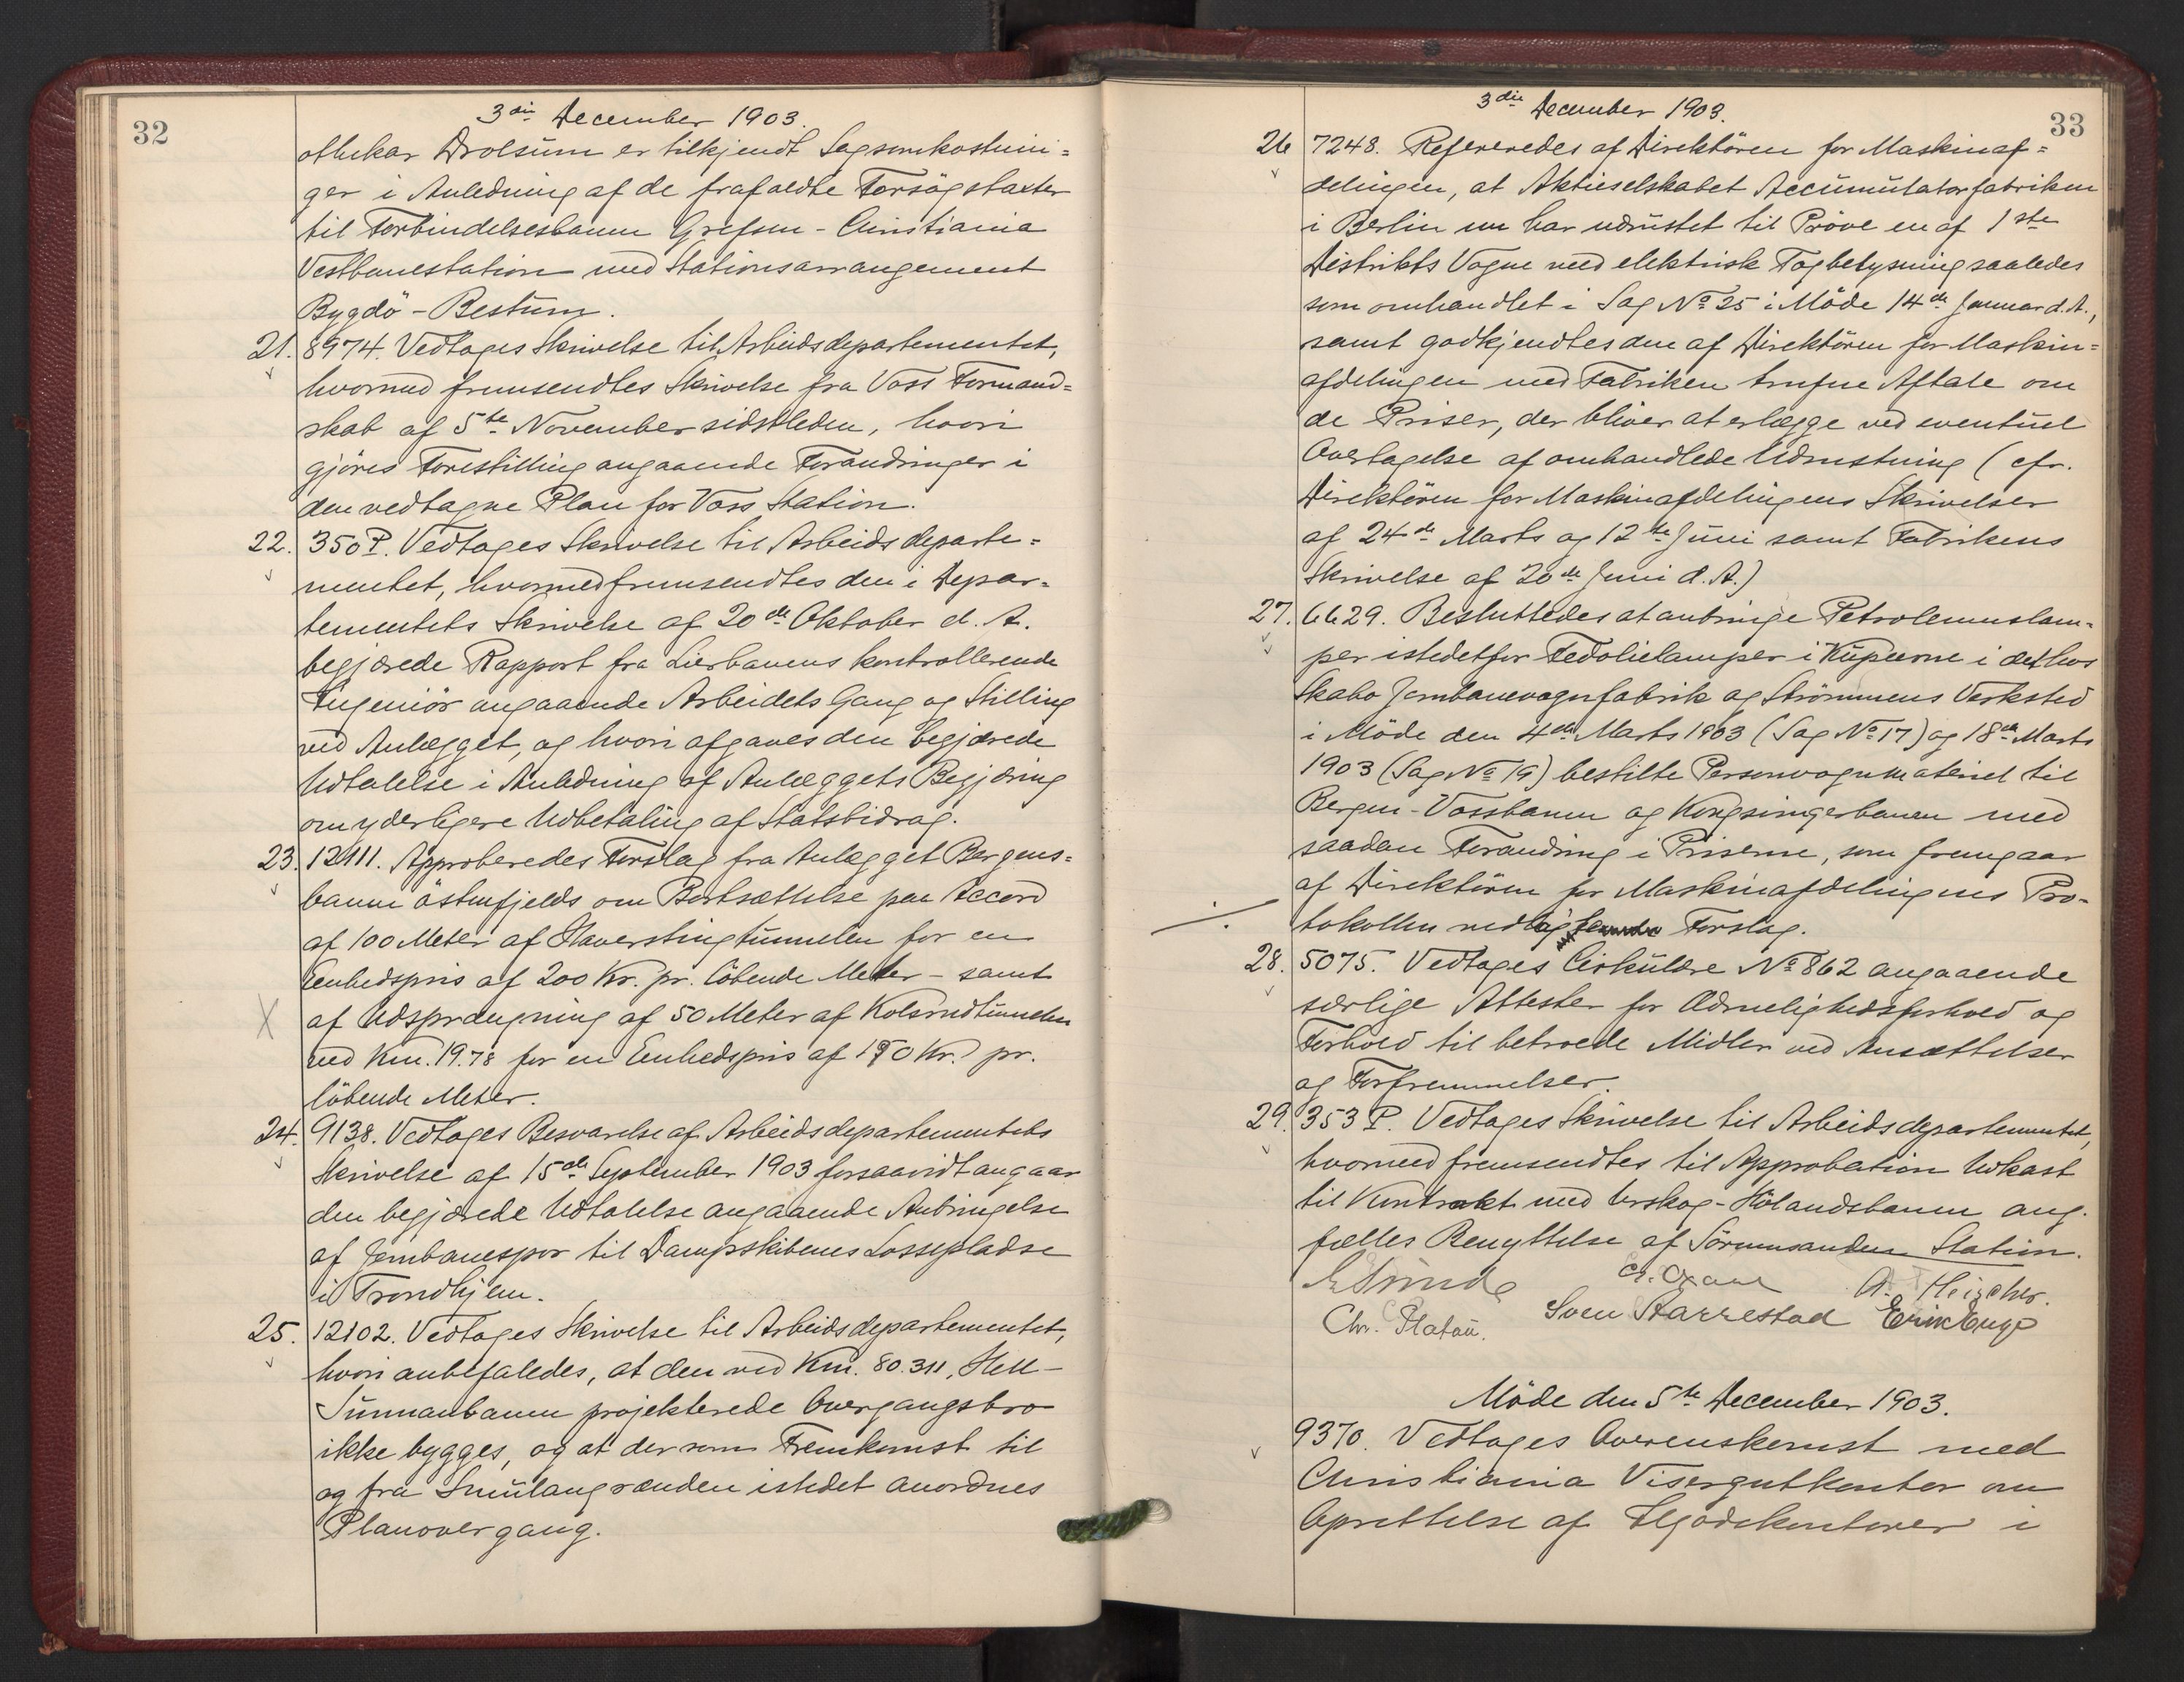 32
3die December 1903.
othekar Drolsum er tilkjendt Sagsomkostnin=
ger i Anledning af de frafaldte Forsøgstaxter
til Forbindelsesbanen Grefsen - Christiania
Vestbanestation med Stationsarrangement
Bygdö - Bestum.
21. 8974. Vedtages Skrivelse til Arbeidsdepartementet,
hvormed fremsendtes Skrivelse fra Voss Formand=
skab af 5te November sidstleden, hvori
gjöres Forestilling angaaende Forandringer i
den vedtagne Plan for Voss Station.
22. 350 P. Vedtages Skrivelse til Arbeidsdeparte=
mentet, hvormed fremsendtes den i Depar=
tementets Skrivelse af 20de Oktober d. A.
begjærede Rapport fra Lierbanens kontrollerende
Ingeniör angaaende Arbeidets Gang og Stilling
ved Anlægget, og hvori afgaves den begjærede
Udtalelse i Anledning af Anlæggets Begjæring
om yderligere Udbetaling af Statsbidrag.
23. 12111. Approberedes Forslag fra Anlægget Bergens=
banen östenfjelds om Bortsættelse paa Accord
af 100 Meter af Haverstingtunnelen for en
Eenhedspris af 200 Kr. pr. löbende Meter - samt
af Udsprængning af 50 Meter af Kolsrudtunnelen
ved Km. 19.78 for en Eenhedspris af Kr. pr.
löbende Meter.
24. 9138. Vedtages Besvarelse af Arbeidsdepartementets
Skrivelse af 15de September 1903 forsaavidt angaar
den begjærede Udtalelse angaaende Anbringelse
af Jernbanespor til Dampskibenes Lossepladse
i Trondhjem.
25. 12102. Vedtages Skrivelse til Arbeidsdepartementet,
hvori anbefaledes, at den ved Km. 80.311, Hell -
Sunnanbanen projekterede Overgangsbro
ikke bygges, og at der som Fremkomst til
og fra Smulangrænden istedet anordnes
Planovergang.
33
3die December 1903.
26 7248. Refereredes af Direktören for Maskinaf=
delingen, at Aktieselskabet Accumulatorfabriken
i Berlin nu har udrustet til Pröve en af 1ste
Distrikts Vogne med elektrisk Togbelysning saaledes
som omhandlet i Sag No 25 i Möde 14de Januar d. A.,
samt godkjendtes den af Direktören for Maskin=
afdelingen med Fabriken trufne Aftale om
de Priser, der bliver at erlægge ved eventuel
Overtagelse af omhandlede Udrustning (cfr.
Direktören for Maskinafdelingens Skrivelser
af 24de Marts og 12te Juni samt Fabrikens
Skrivelse af 20de Juni d. A.)
27. 6629. Besluttedes at anbringe Petroleumslam=
per istedetfor Fedolielamper i Kupeerne i det hos
Skabo Jernbanevognfabrik og Strömmens Verksted
i Möde den 4de Marts 1903 (Sag No 17) og 18de Marts
1903 (Sag No 19) bestilte Personvognmateriel til
Bergen-Vossbanen og Kongsvingerbanen med
saadan Forandring i Priserne, som fremgaar
af Direktören for Maskinafdelingens Pro-
tokollen vedlagte Forslag.
28. 5075. Vedtages Cirkulære No 862 angaaende
særlige Attester for Ædruelighedsforhold og
Forhold til betroede Midler ved Ansættelser
og Forfremmelser.
29. 353 P. Vedtages Skrivelse til Arbeidsdepartementet,
hvormed fremsendtes til Approbation Udkast
til Kontrakt med Urskog-Hölandsbanen ang.
fælles Benyttelse af Sörumsanden Station.
E Sunde A. Fleischer.
Chr. Platou. Sven Aarrestad Erik Enge
Möde den 5te December 1903.
9370. Vedtages Overenskomst med
Christiania Visergutkontor om
Oprettelse af Ilgodskontorer i